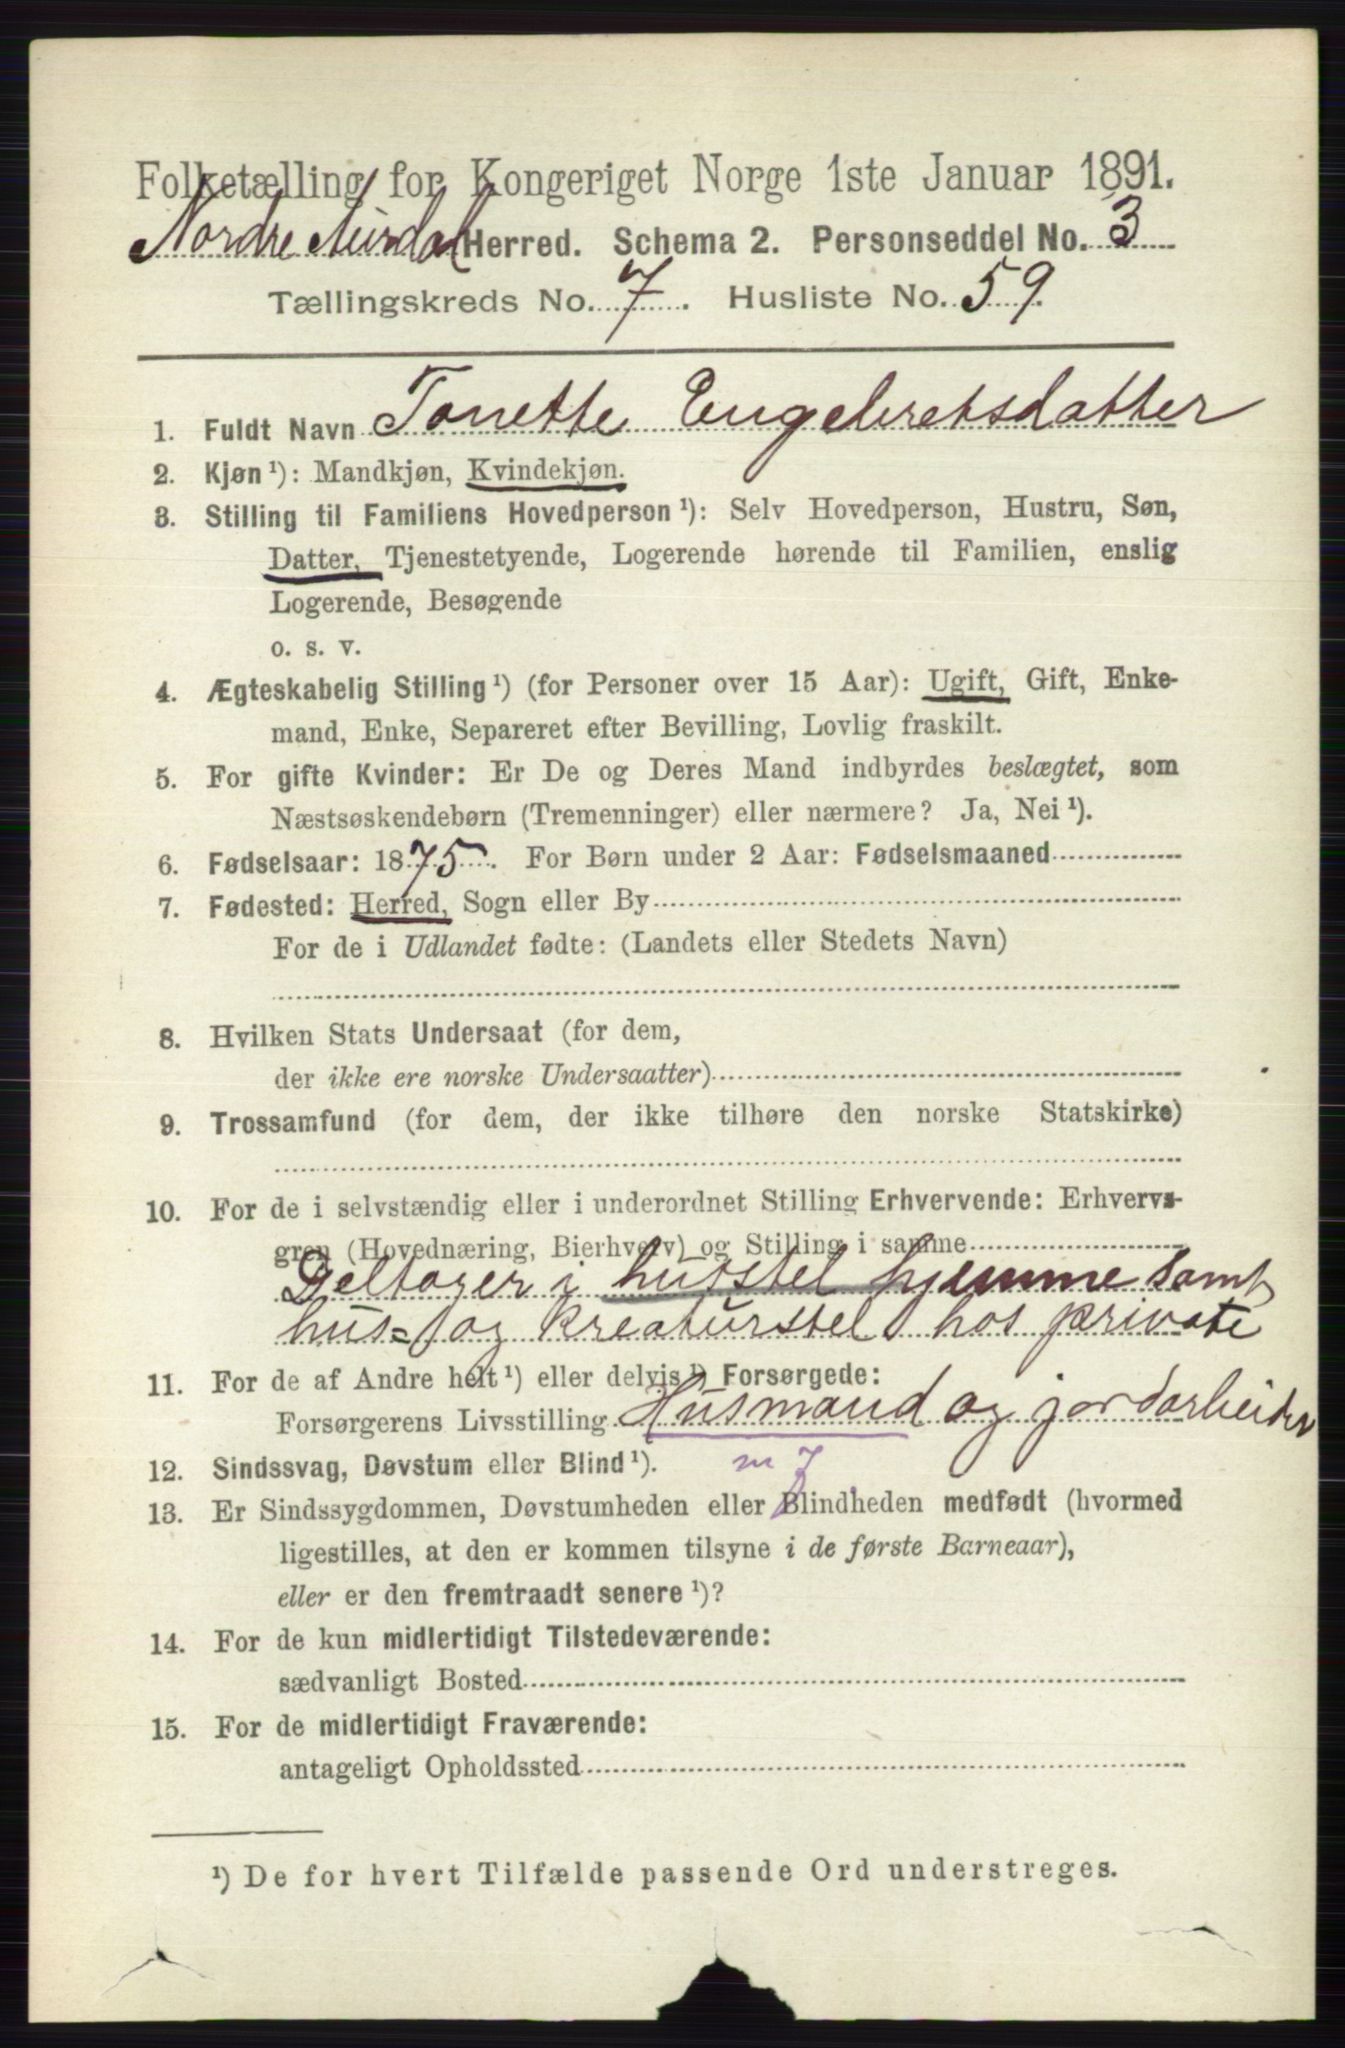 Folketælling for Kongeriget Norge 1ste Januar 1891.
Nordre Aurdal Herred. Schema 2. Personseddel No. 3
Tællingskreds No. 7. Husliste No. 59.
1. Fuldt Navn Tonette Engebretsdatter
2. Kjøn ¹): Mandkjøn, Kvindekjøn.
3. Stilling til Familiens Hovedperson ¹): Selv Hovedperson, Hustru, Søn,
Datter, Tjenestetyende, Logerende hørende til Familien, enslig
Logerende, Besøgende
o. s. v.
4. Ægteskabelig Stilling ¹) (for Personer over 15 Aar): Ugift, Gift, Enke-
mand, Enke, Separeret efter Bevilling, Lovlig fraskilt.
5. For gifte Kvinder: Er De og Deres Mand indbyrdes beslægtet, som
Næstsøskendebørn (Tremenninger) eller nærmere? Ja, Nei ¹).
6. Fødselsaar: 1875. For Børn under 2 Aar: Fødselsmaaned
7. Fødested: Herred, Sogn eller By
For de i Udlandet fødte: (Landets eller Stedets Navn)
8. Hvilken Stats Undersaat (for dem,
der ikke ere norske Undersaatter)
9. Trossamfund (for dem, der ikke tilhøre den norske Statskirke)
10. For de i selvstændig eller i underordnet Stilling Erhvervende: Erhvervs-
gren (Hovednæring, Bierhverv) og Stilling i samme
Deltager i husstel hjemme samt
hus= og kreaturstel hos private
11. For de af Andre helt ¹) eller delvis ¹) Forsørgede:
Forsørgerens Livsstilling Husmand og jordarbeider
12. Sindssvag, Døvstum eller Blind ¹). m 7
13. Er Sindssygdommen, Døvstumheden eller Blindheden medfødt (hvormed
ligestilles, at den er kommen tilsyne i de første Barneaar),
eller er den fremtraadt senere ¹)?
14. For de kun midlertidigt Tilstedeværende:
sædvanligt Bosted
15. For de midlertidigt Fraværende:
antageligt Opholdssted
¹) De for hvert Tilfælde passende Ord understreges.